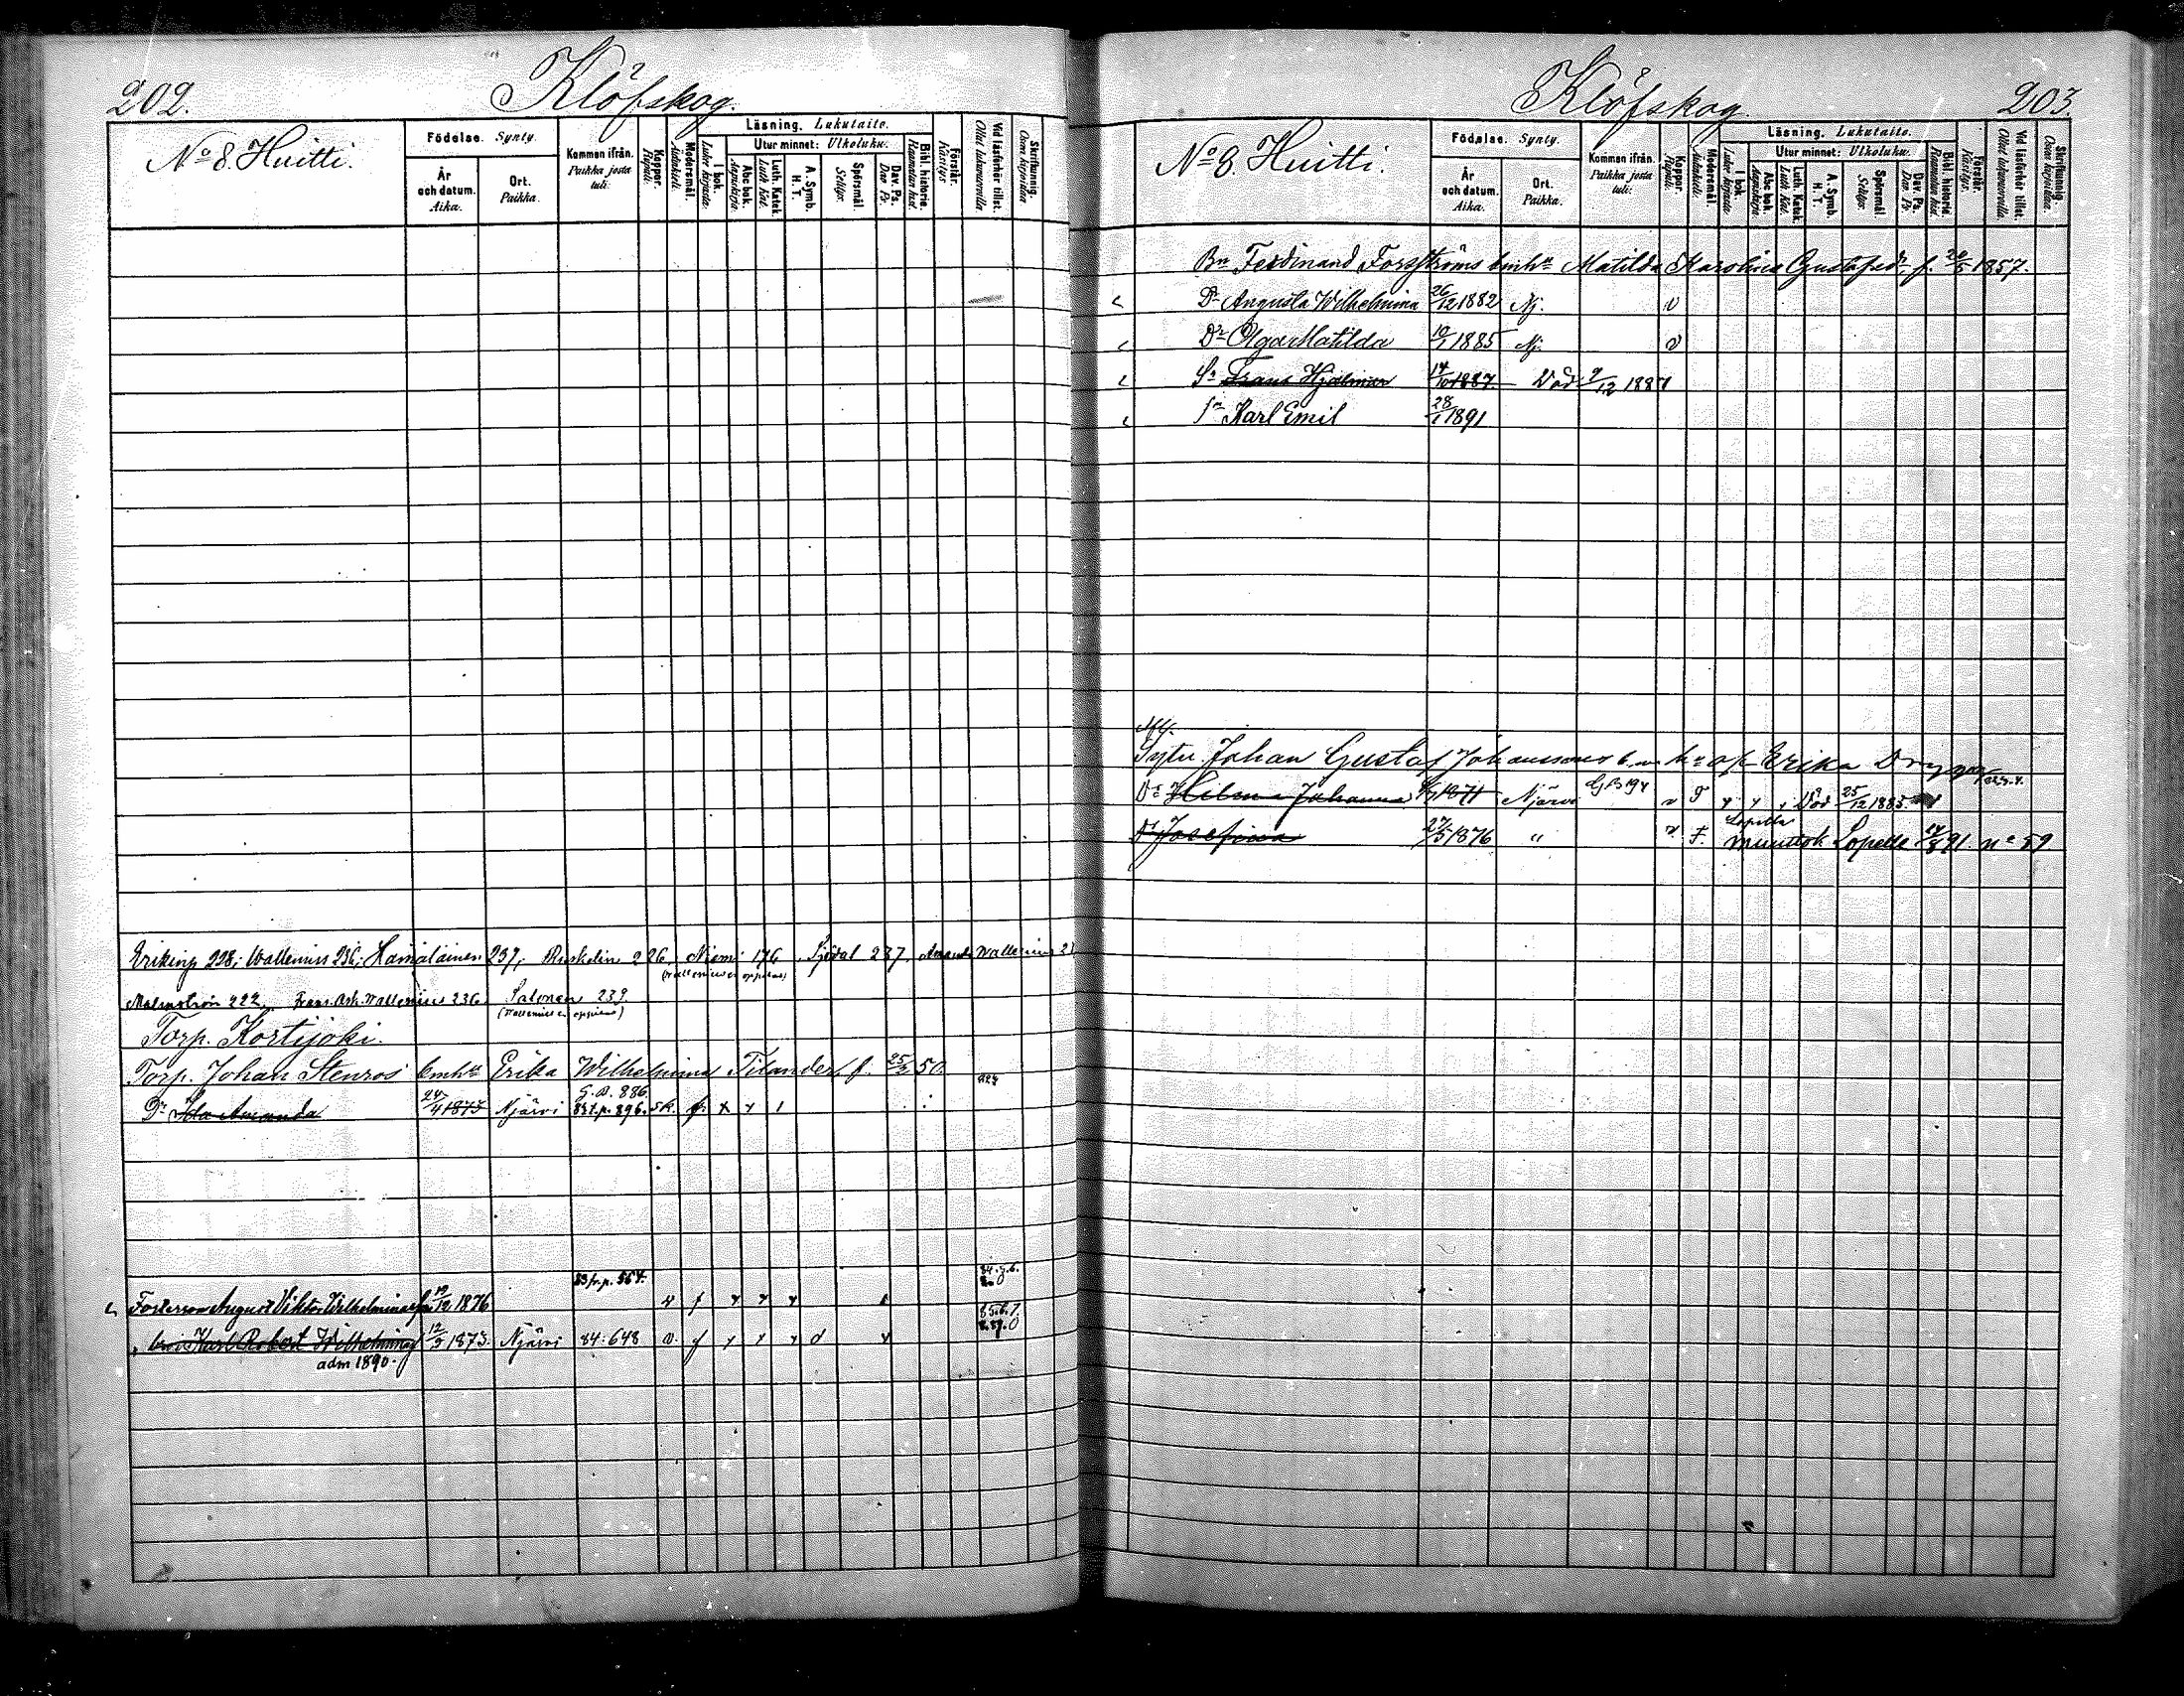 202.
Klöfskog.
No 8. Huitti.
Födelse. Synty.
År och datum. Aika.
Ort. Paikka.
Kommen ifrån. Paikka josta tuli:
Koppor. Rupuli.
Modersmål. Äidinkieli.
Läsning. Lukutaito.
I bok. Lukee kirjasta.
Utur minnet: Ulkoluku.
Abc bok. Aapiskirja.
Luth. Katek. Luth. Kat.
A. Symb. H. T.
Spörsmål. Selitys.
Dav. Ps. Dav. Ps.
Bibl. historie. Raamatun hist.
Förstår. Käsitys.
Vid läsförhör tillst. Ollut lukuseroilla
Skriftkunnig. Osaa kirjoittaa
Eriking 228; Wallenius 236; Hämäläinen 237; Ruskelin 226, Niemi 176, Sjödal 237, Amanda Wallenius
Malmström 222, Frans. Osk. Wallenius 236 Salonen 239
Torp. Kortijoki.
Torp. Johan Stenros' bmhu Erika Wilhelmina Tilander f. 25/3 50.
G. B. 886.
Dr Ida Amanda 24/4 1873 Njärvi 83 t.p. 896. sk. f. x x 1
83 fr.p. 564.
Fosterson August Viktor Wilhelminas fru 19/12 1876 v f x x x
Karl Robert Wilhelminas 12/3 1873 Njärvi 84:648 v. f x x x d x
adm 1890.
Klöfskog.
203.
No 8. Huitti.
Födelse. Synty.
År och datum. Aika.
Ort. Paikka.
Kommen ifrån. Paikka josta tuli:
Koppor. Rupuli.
Modersmål. Äidinkieli.
Läsning. Lukutaito.
I bok. Lukee kirjasta
Utur minnet: Ulkoluku.
Abc bok. Aapiskirja.
Luth. Katek. Luth. Kat.
A. Symb. H. T.
Spörsmål Selitys.
Dav. Ps. Dav. Ps
Bibl. historie. Raamatun hist.
Förstår. Käsitys.
Vid läsförhör tillst. Ollut lukuseroilla
Skriftkunnig. Osaa kirjoittaa
Bn Ferdinand Forsströms bmhu Matilda Karolina Gustafsdr f. 20/5 1857.
Dr Augusta Wilhelmina 26/12 1882 Nj. v
Dr Olga Matilda 10/1 1885 Nj. v
Sn Frans Hjalmar 14/10 1887 Död 9/12 1887
Sn Karl Emil 28/1 1891
Sytn. Johan Gustaf Johanssons b. m. hu a/s Erika
Dr Hilma Johanna 1871 Njärvi G B 194 v F x x Död 25/12 1885.
Dr Josefina 27/5 1876 " v F. muuttok Lopelle 14/8 91. no 59